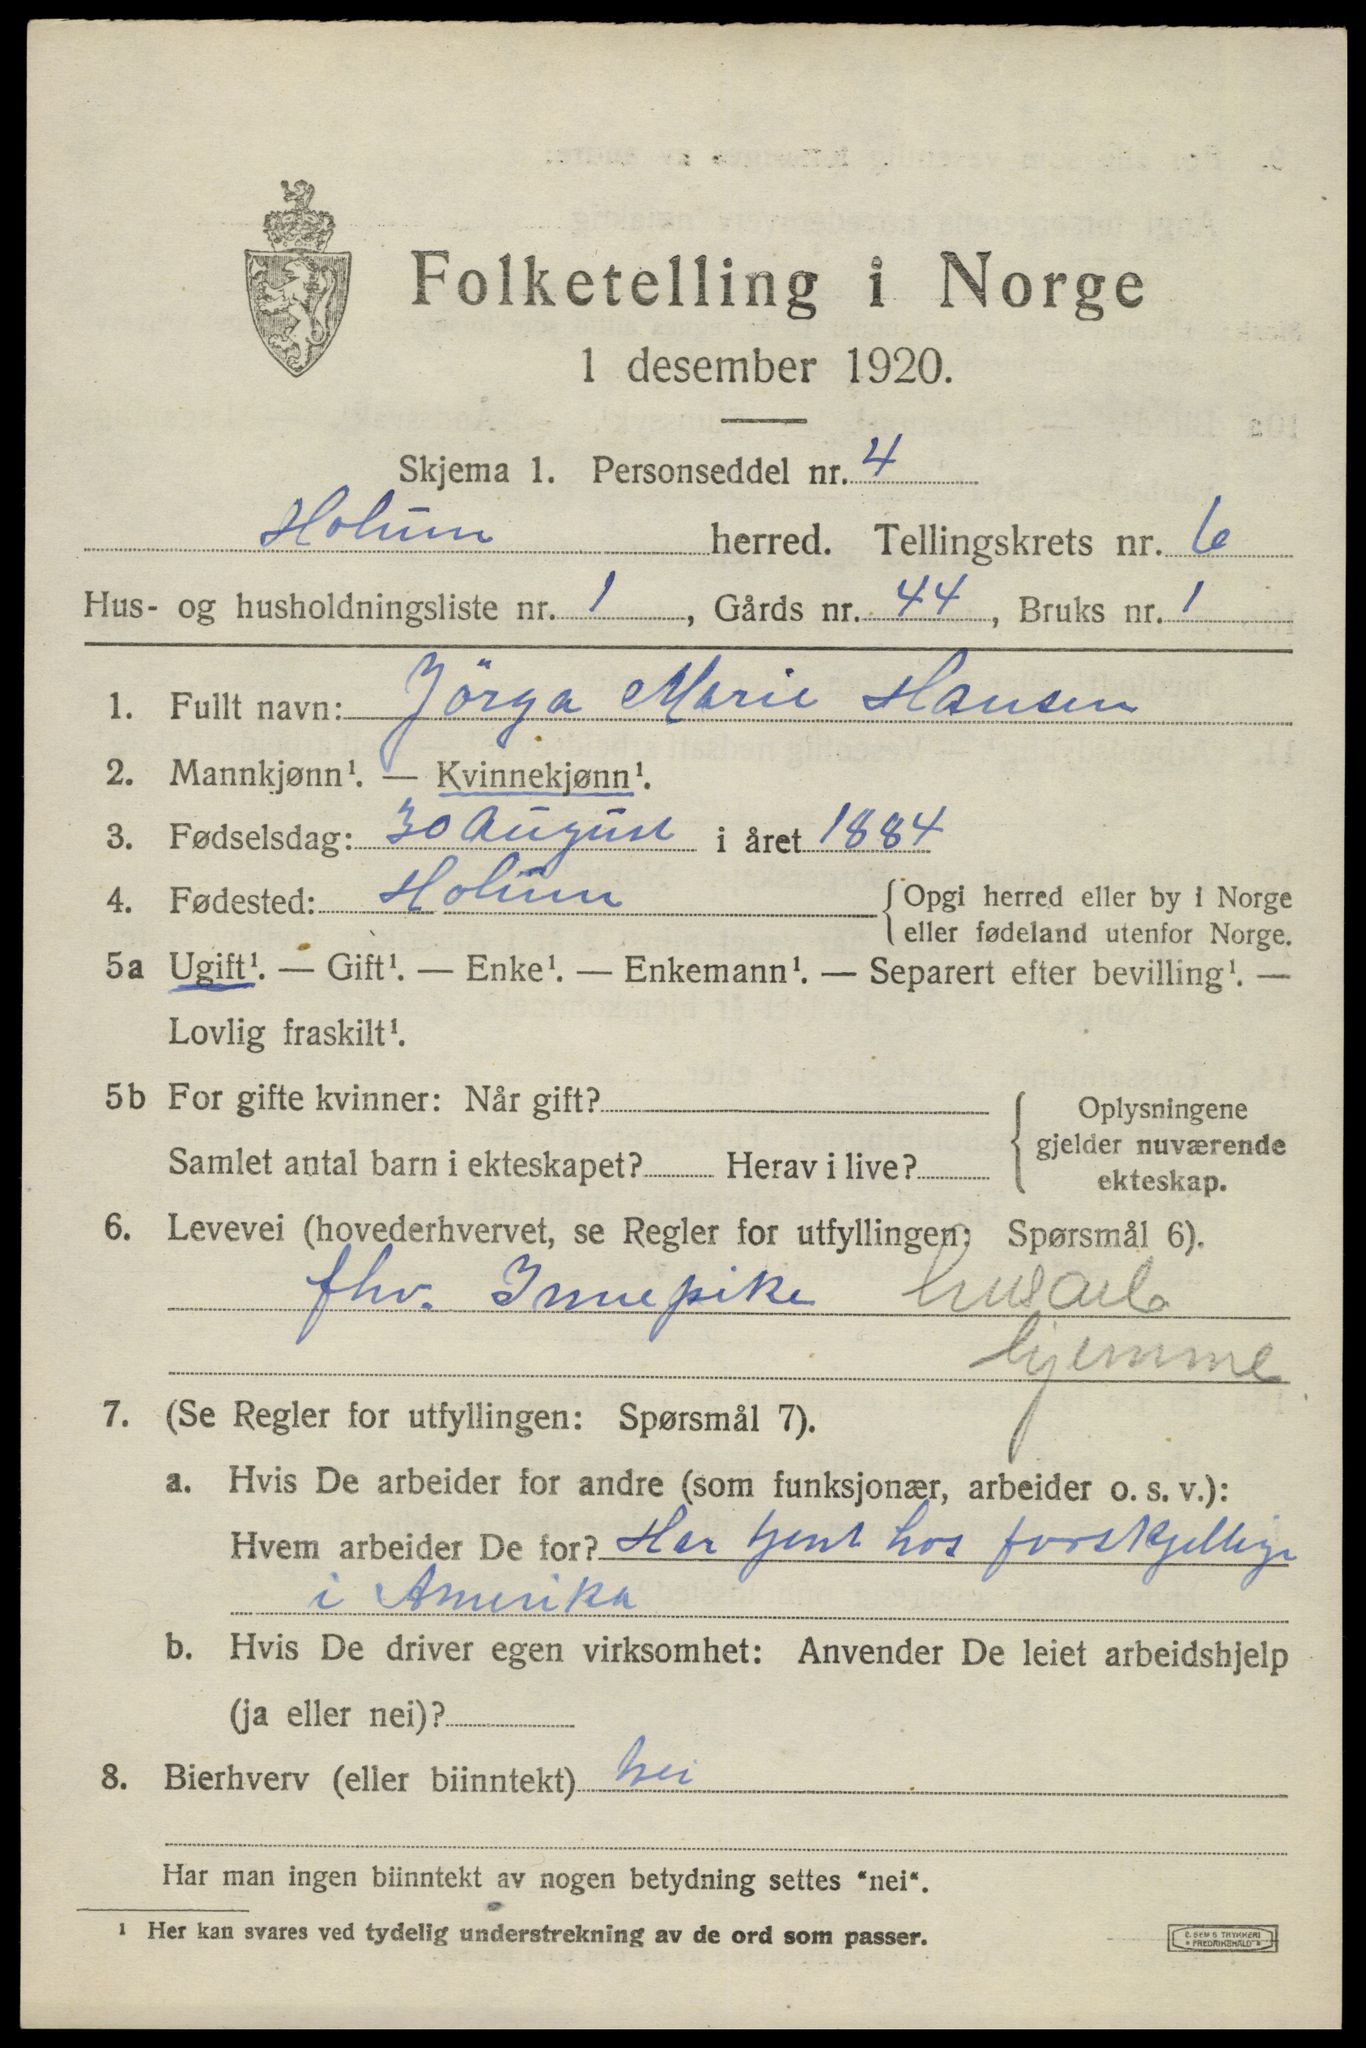 Folketelling i Norge
1 desember 1920.
Skjema 1. Personseddel nr. 4
Holum herred. Tellingskrets nr. 6
Hus- og husholdningsliste nr. 1, Gårds nr. 44, Bruks nr. 1
1. Fullt navn: Jörga Marie Hansen
2. Mannkjønn¹. — Kvinnekjønn¹.
3. Fødselsdag: 30 August i året 1884
4. Fødested: Holum {Opgi herred eller by i Norge
eller fødeland utenfor Norge.
5a Ugift¹. — Gift¹. — Enke¹. — Enkemann¹. — Separert efter bevilling¹. —
Lovlig fraskilt¹.
5b For gifte kvinner: Når gift?
Samlet antal barn i ekteskapet? Herav i live?
{ Oplysningene
gjelder nuværende
ekteskap.
6. Levevei (hovederhvervet, se Regler for utfyllingen: Spørsmål 6).
fhv. Innepike husarb
hjemme
7. (Se Regler for utfyllingen: Spørsmål 7).
a. Hvis De arbeider for andre (som funksjonær, arbeider o. s. v.):
Hvem arbeider De for? Har tjent hos forskjellige
i Amerika
b. Hvis De driver egen virksomhet: Anvender De leiet arbeidshjelp
(ja eller nei)?
8. Bierhverv (eller biinntekt) nei
Har man ingen biinntekt av nogen betydning settes "nei".
¹ Her kan svares ved tydelig understrekning av de ord som passer.
E. SEM'S TRYKKERI
FREDRIKSHALD